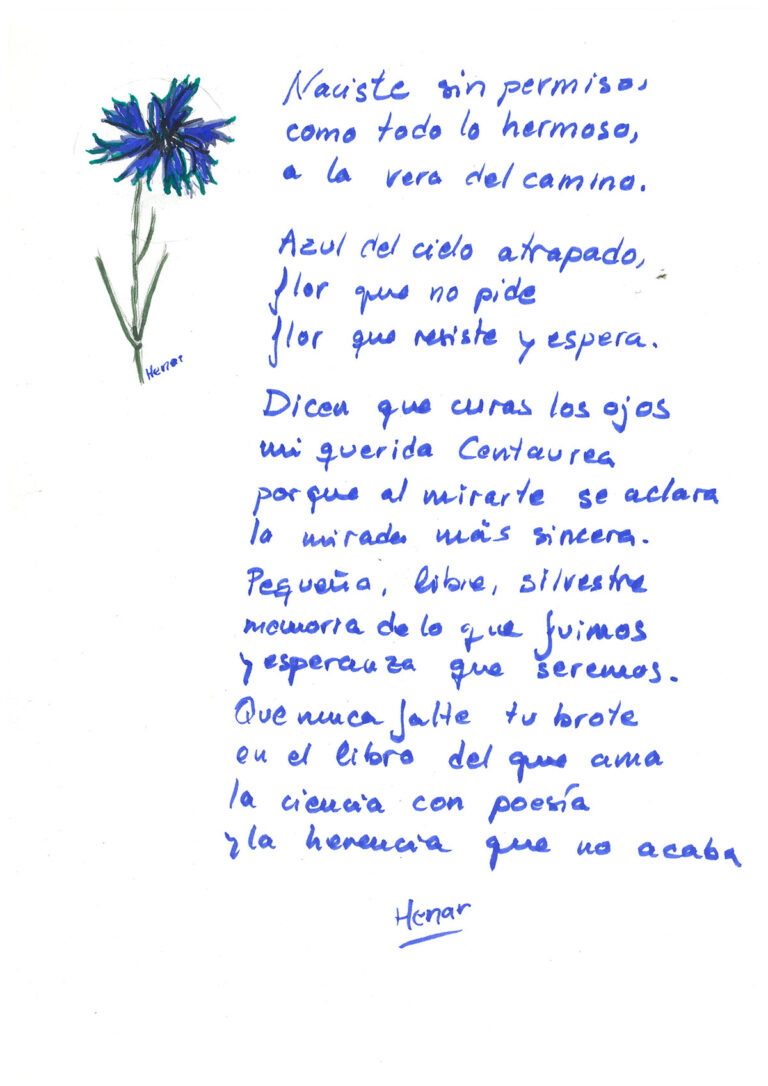 Naciste sin permiso,
como todo lo hermoso,
a la vera del camino.
Azul del cielo atrapado,
flor que no pide
flor que resiste y espera.
Henar
Dicen que curas los ojos
mi querida Centaurea
porque al mirarte se aclara
la mirada más sincera.
Pequeña, libre, silvestre
memoria de lo que fuimos
y esperanza que seremos.
Que nunca falte tu brote
en el libro del que ama
la ciencia con poesía
y la herencia que no acaba
Henar